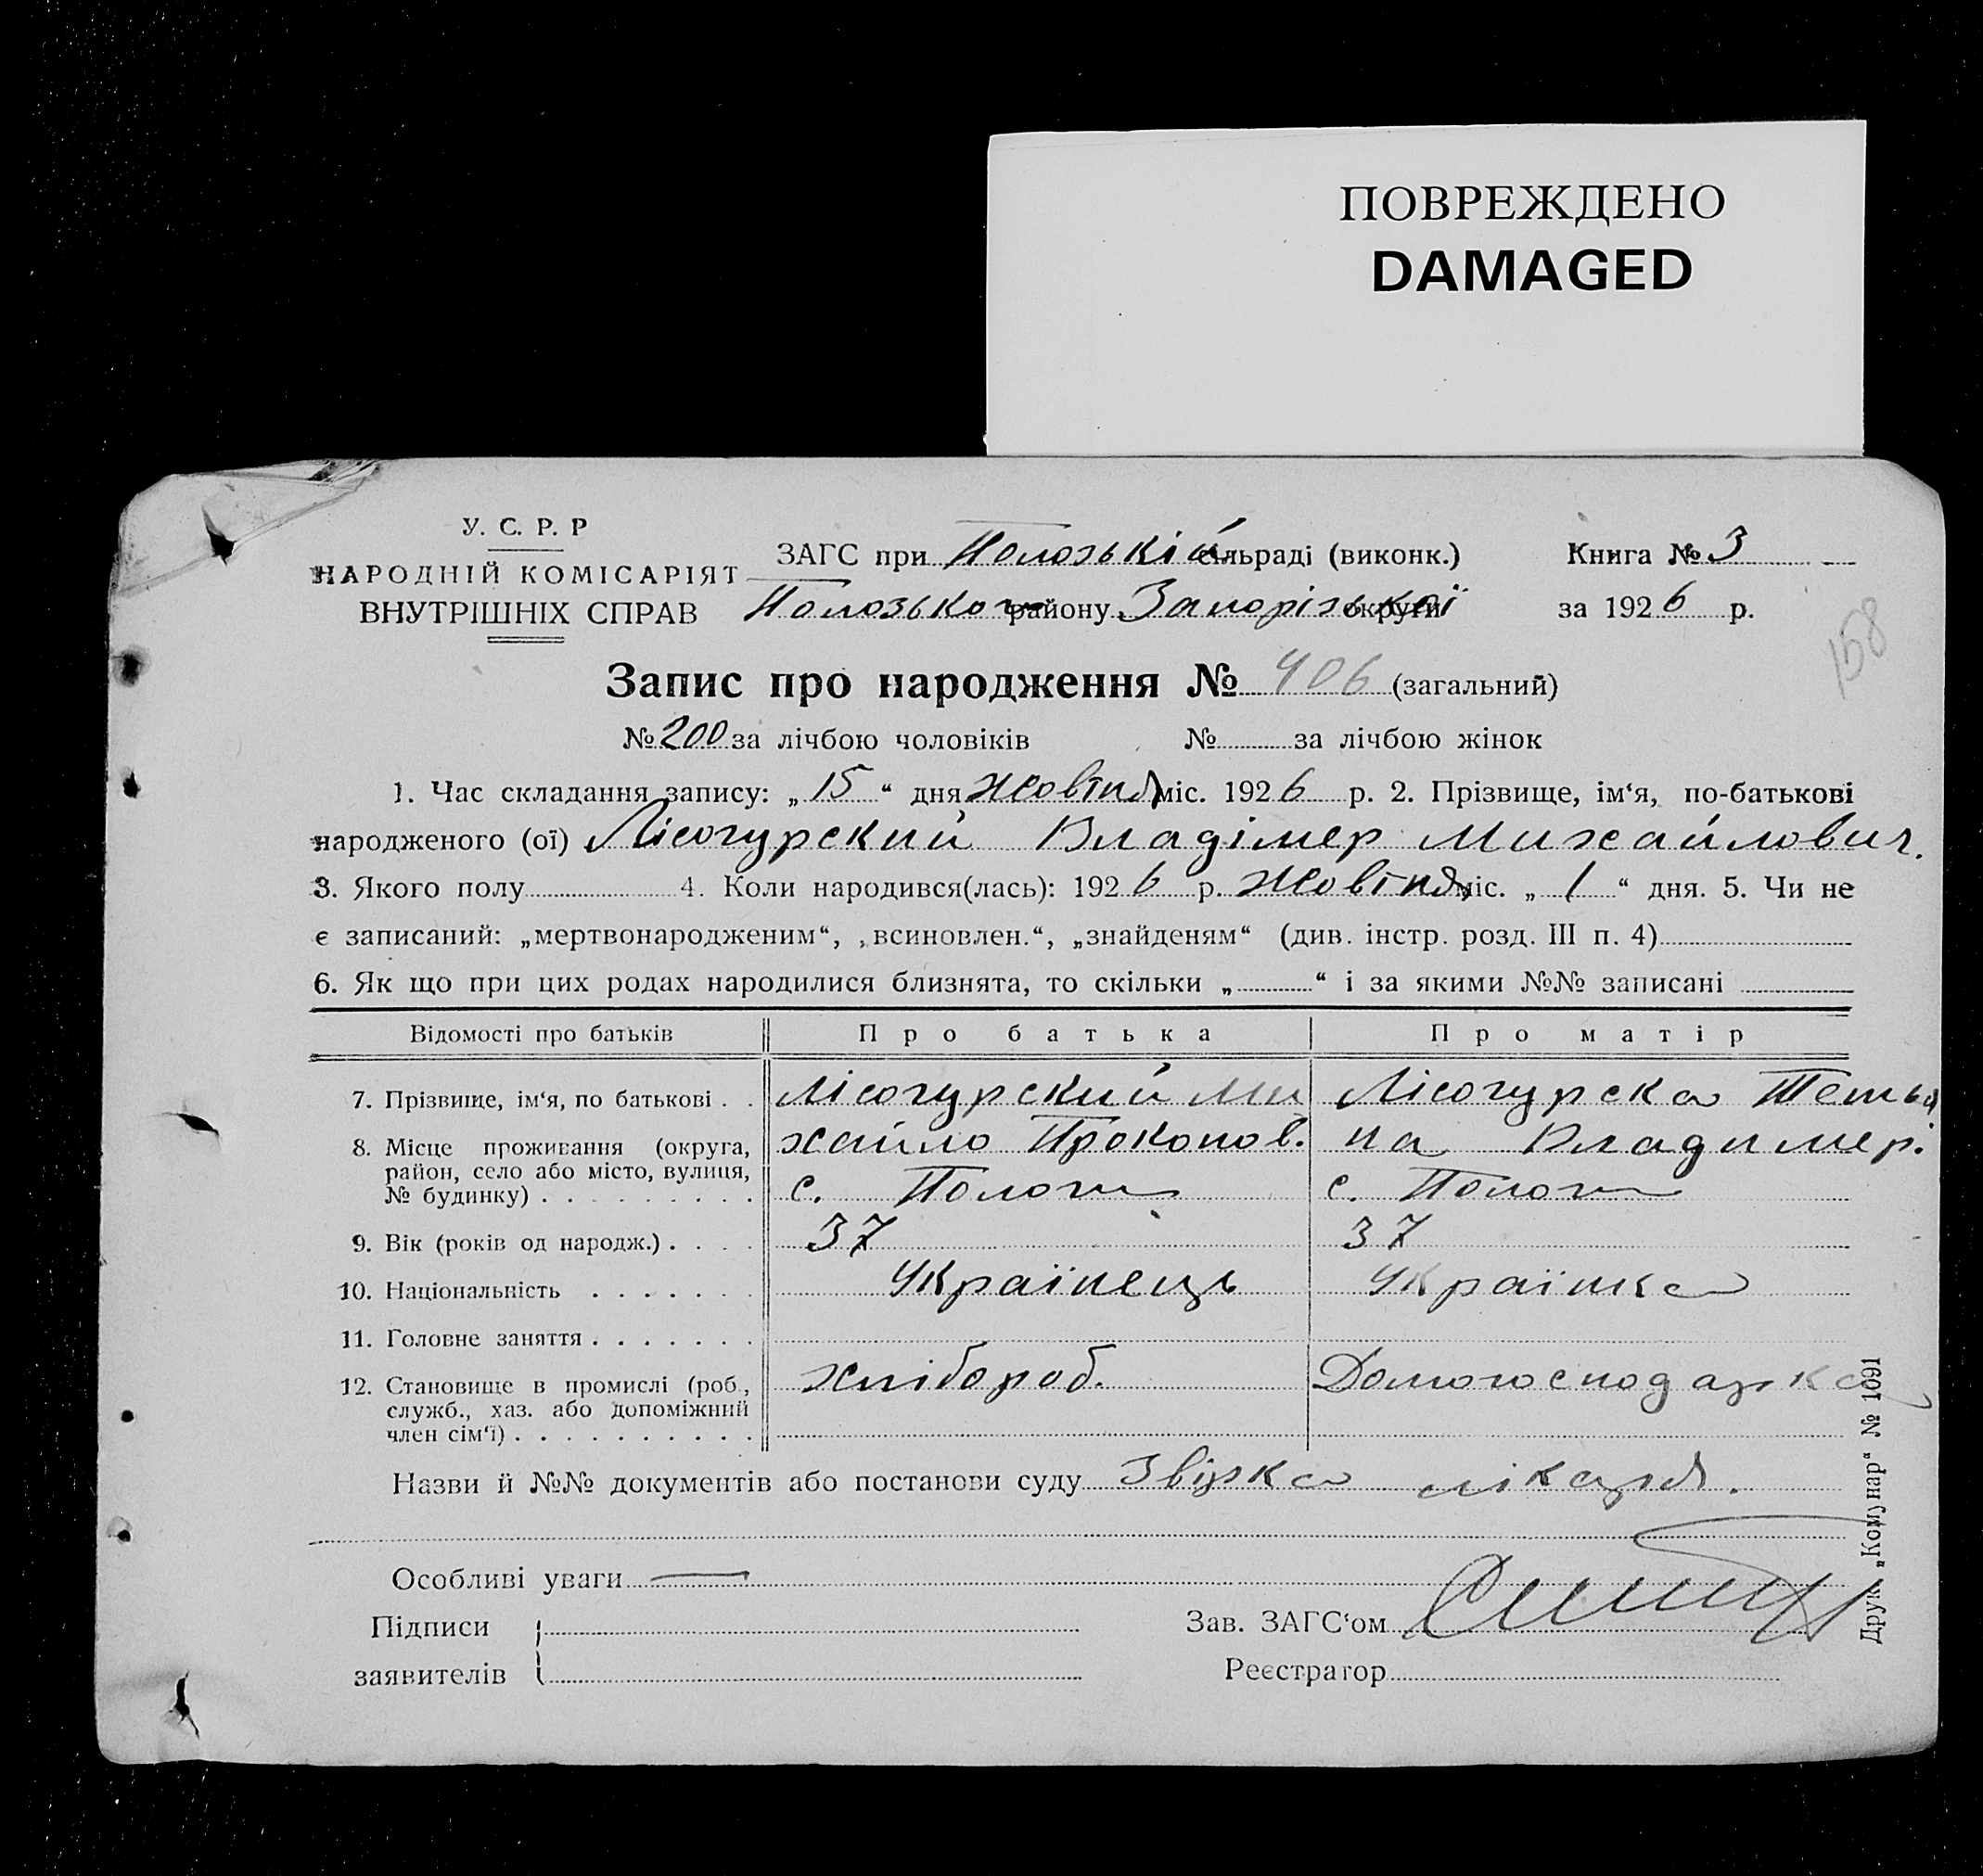 ПОВРЕЖДЕНО
DAMAGED
У. С. Р. Р
НАРОДНІЙ КОМІСАРІЯТ
ВНУТРІШНІХ СПРАВ
ЗАГС при Полозькій сільраді (виконк.)
Книга № 3
Полозького району Запорізької округи
за 1926 р.
158
Запис про народження № 406 (загальний)
№ 200 за лічбою чоловіків № за лічбою жінок
1. Час складання запису: „15“ дня жовтня міс. 1926 р. 2. Прізвище, ім‘я, по-батькові
народженого (ої) Лісогурский Владімер Михайлович.
3. Якого полу 4. Коли народився(лась): 1926 р. жовтня міс. „1“ дня. 5. Чи не
є записаний: „мертвонародженим“, „всиновлен.“, „знайденям“ (див. інстр. розд. III п. 4)
6. Як що при цих родах народилися близнята, то скільки „ “ і за якими №№ записані
Відомості про батьків Про батька Про матір
7. Прізвище, ім‘я, по батькові . . Лісогурский Ми Лісогурска Тетья
8. Місце проживання (округа, хайло Прокопов. на Владимері.
район, село або місто, вулиця,
№ будинку) . . . . . . . . . с. Пологи с. Пологи
9. Вік (років од народж.) . . . . 37 37
10. Національність . . . . . . . Українець Українка
11. Головне заняття . . . . . . .
12. Становище в промислі (роб., хлібороб. Домогосподарка
служб., хаз. або допоміжний
член сім‘ї) . . . . . . . . . .
Назви й №№ документів або постанови суду Звірка лікаря.
Особливі уваги —
Підписи
заявителів
Зав. ЗАГС‘ом
Реєстратор
Друк. „Комунар“ № 1091